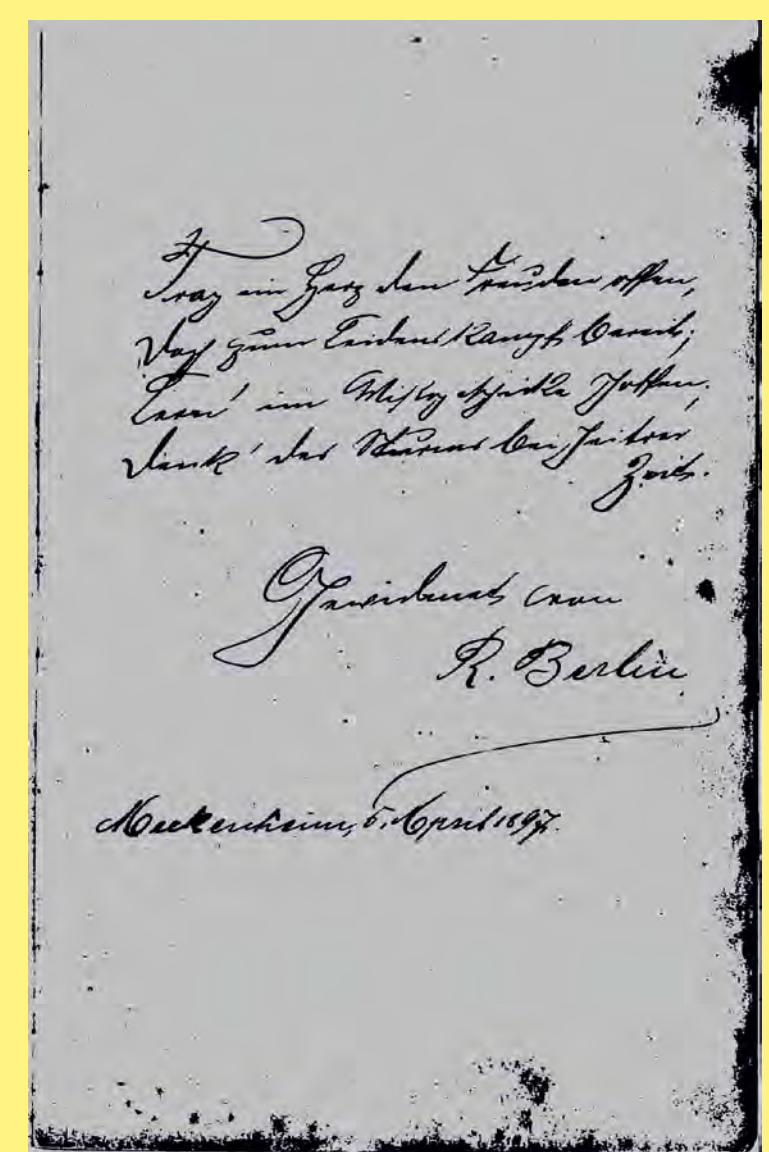 Trag ein Herz den Freuden offen,
Doch zum Leidens Kampf bereit;
Lern' im Mißgeschicke hoffen,
Denk' des Sturms bei heitrer
Zeit.
Gewidmet von
R. Berlin
Meckenheim, 5. April 1897.